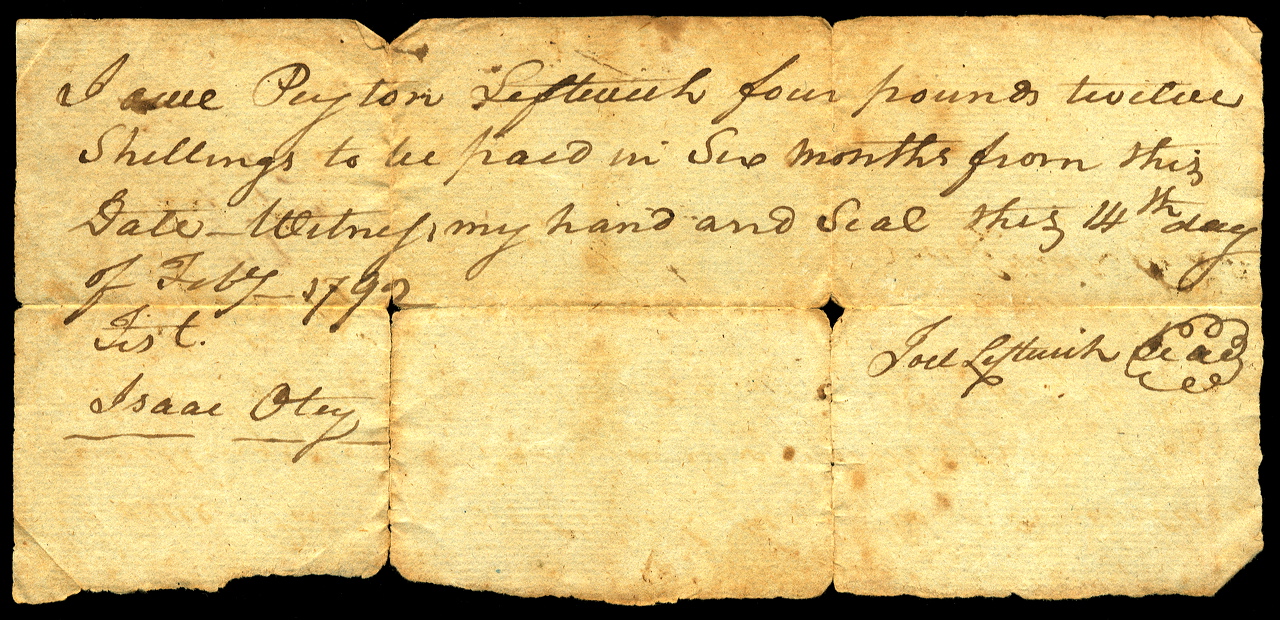 I owe Peyton Leftwich four pounds twelve
Shillings to be paid in Six months from this
Date – Witness my hand and Seal this 14th day
of Feby – 1792
Test.
Joel Leftwich Seal
Isaac Otey